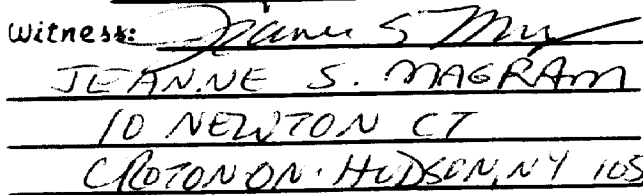 Witness: Jeanne S
JEANNE S. MAGRAM
10 NEWTON CT
CROTON ON. HUDSON, NY 105